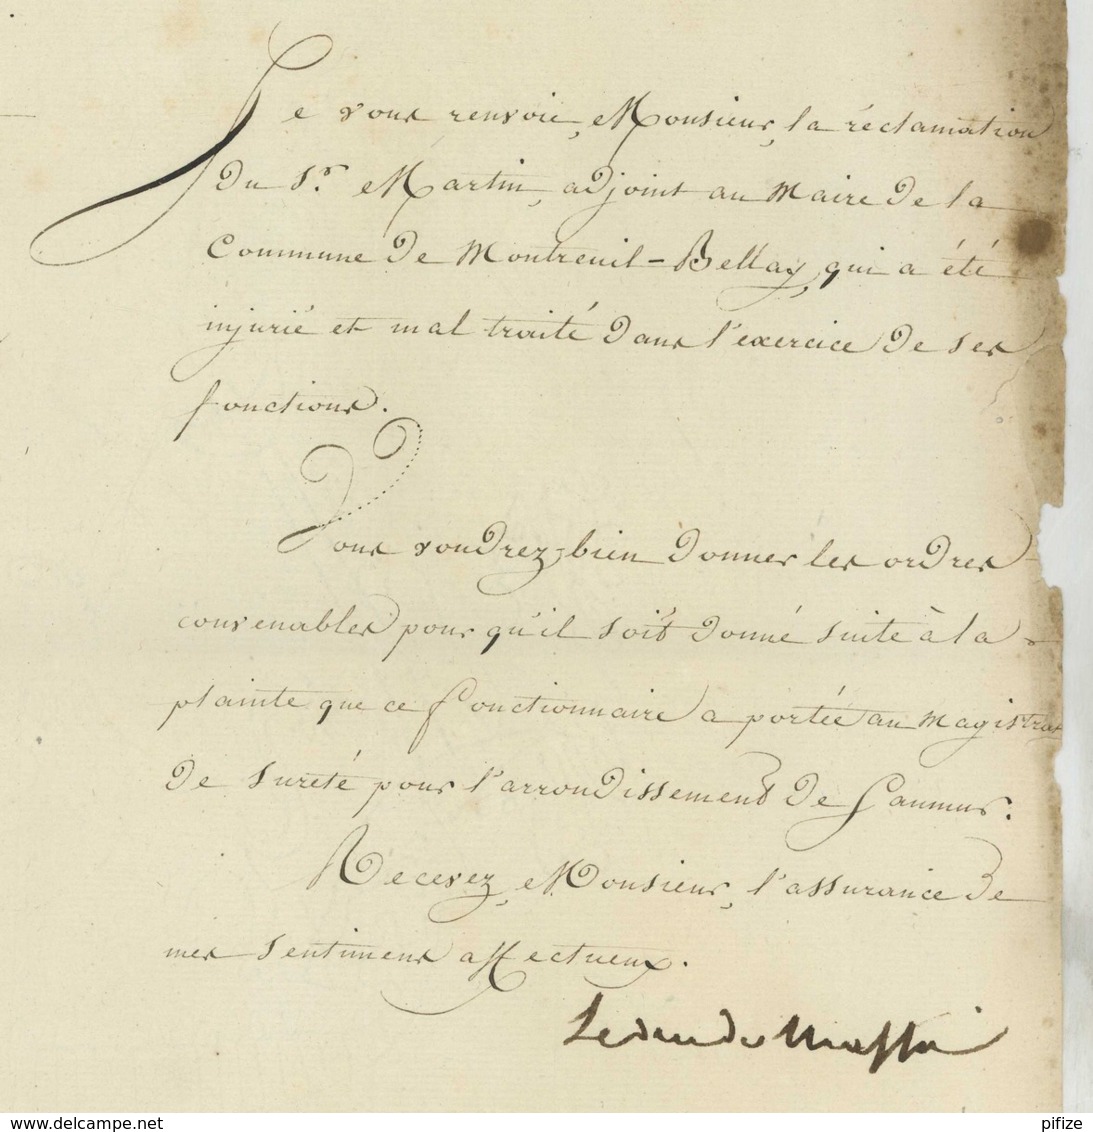 Je vous renvoie, Monsieur, la réclamation
du Sr. Martin, adjoint au Maire de la
Commune de Montreuil-Bellay, qui a été
injurié et mal traité dans l'exercice de ses
fonctions.
Vous voudrez bien donner les ordres
convenables pour qu'il soit donné suite à la
plainte que ce fonctionnaire a portée au Magistrat
de sureté pour l'arrondissement de Saumur.
Recevez, Monsieur, l'assurance de
mes sentimens affectueux.
Le
www.delcampe.net
pifize